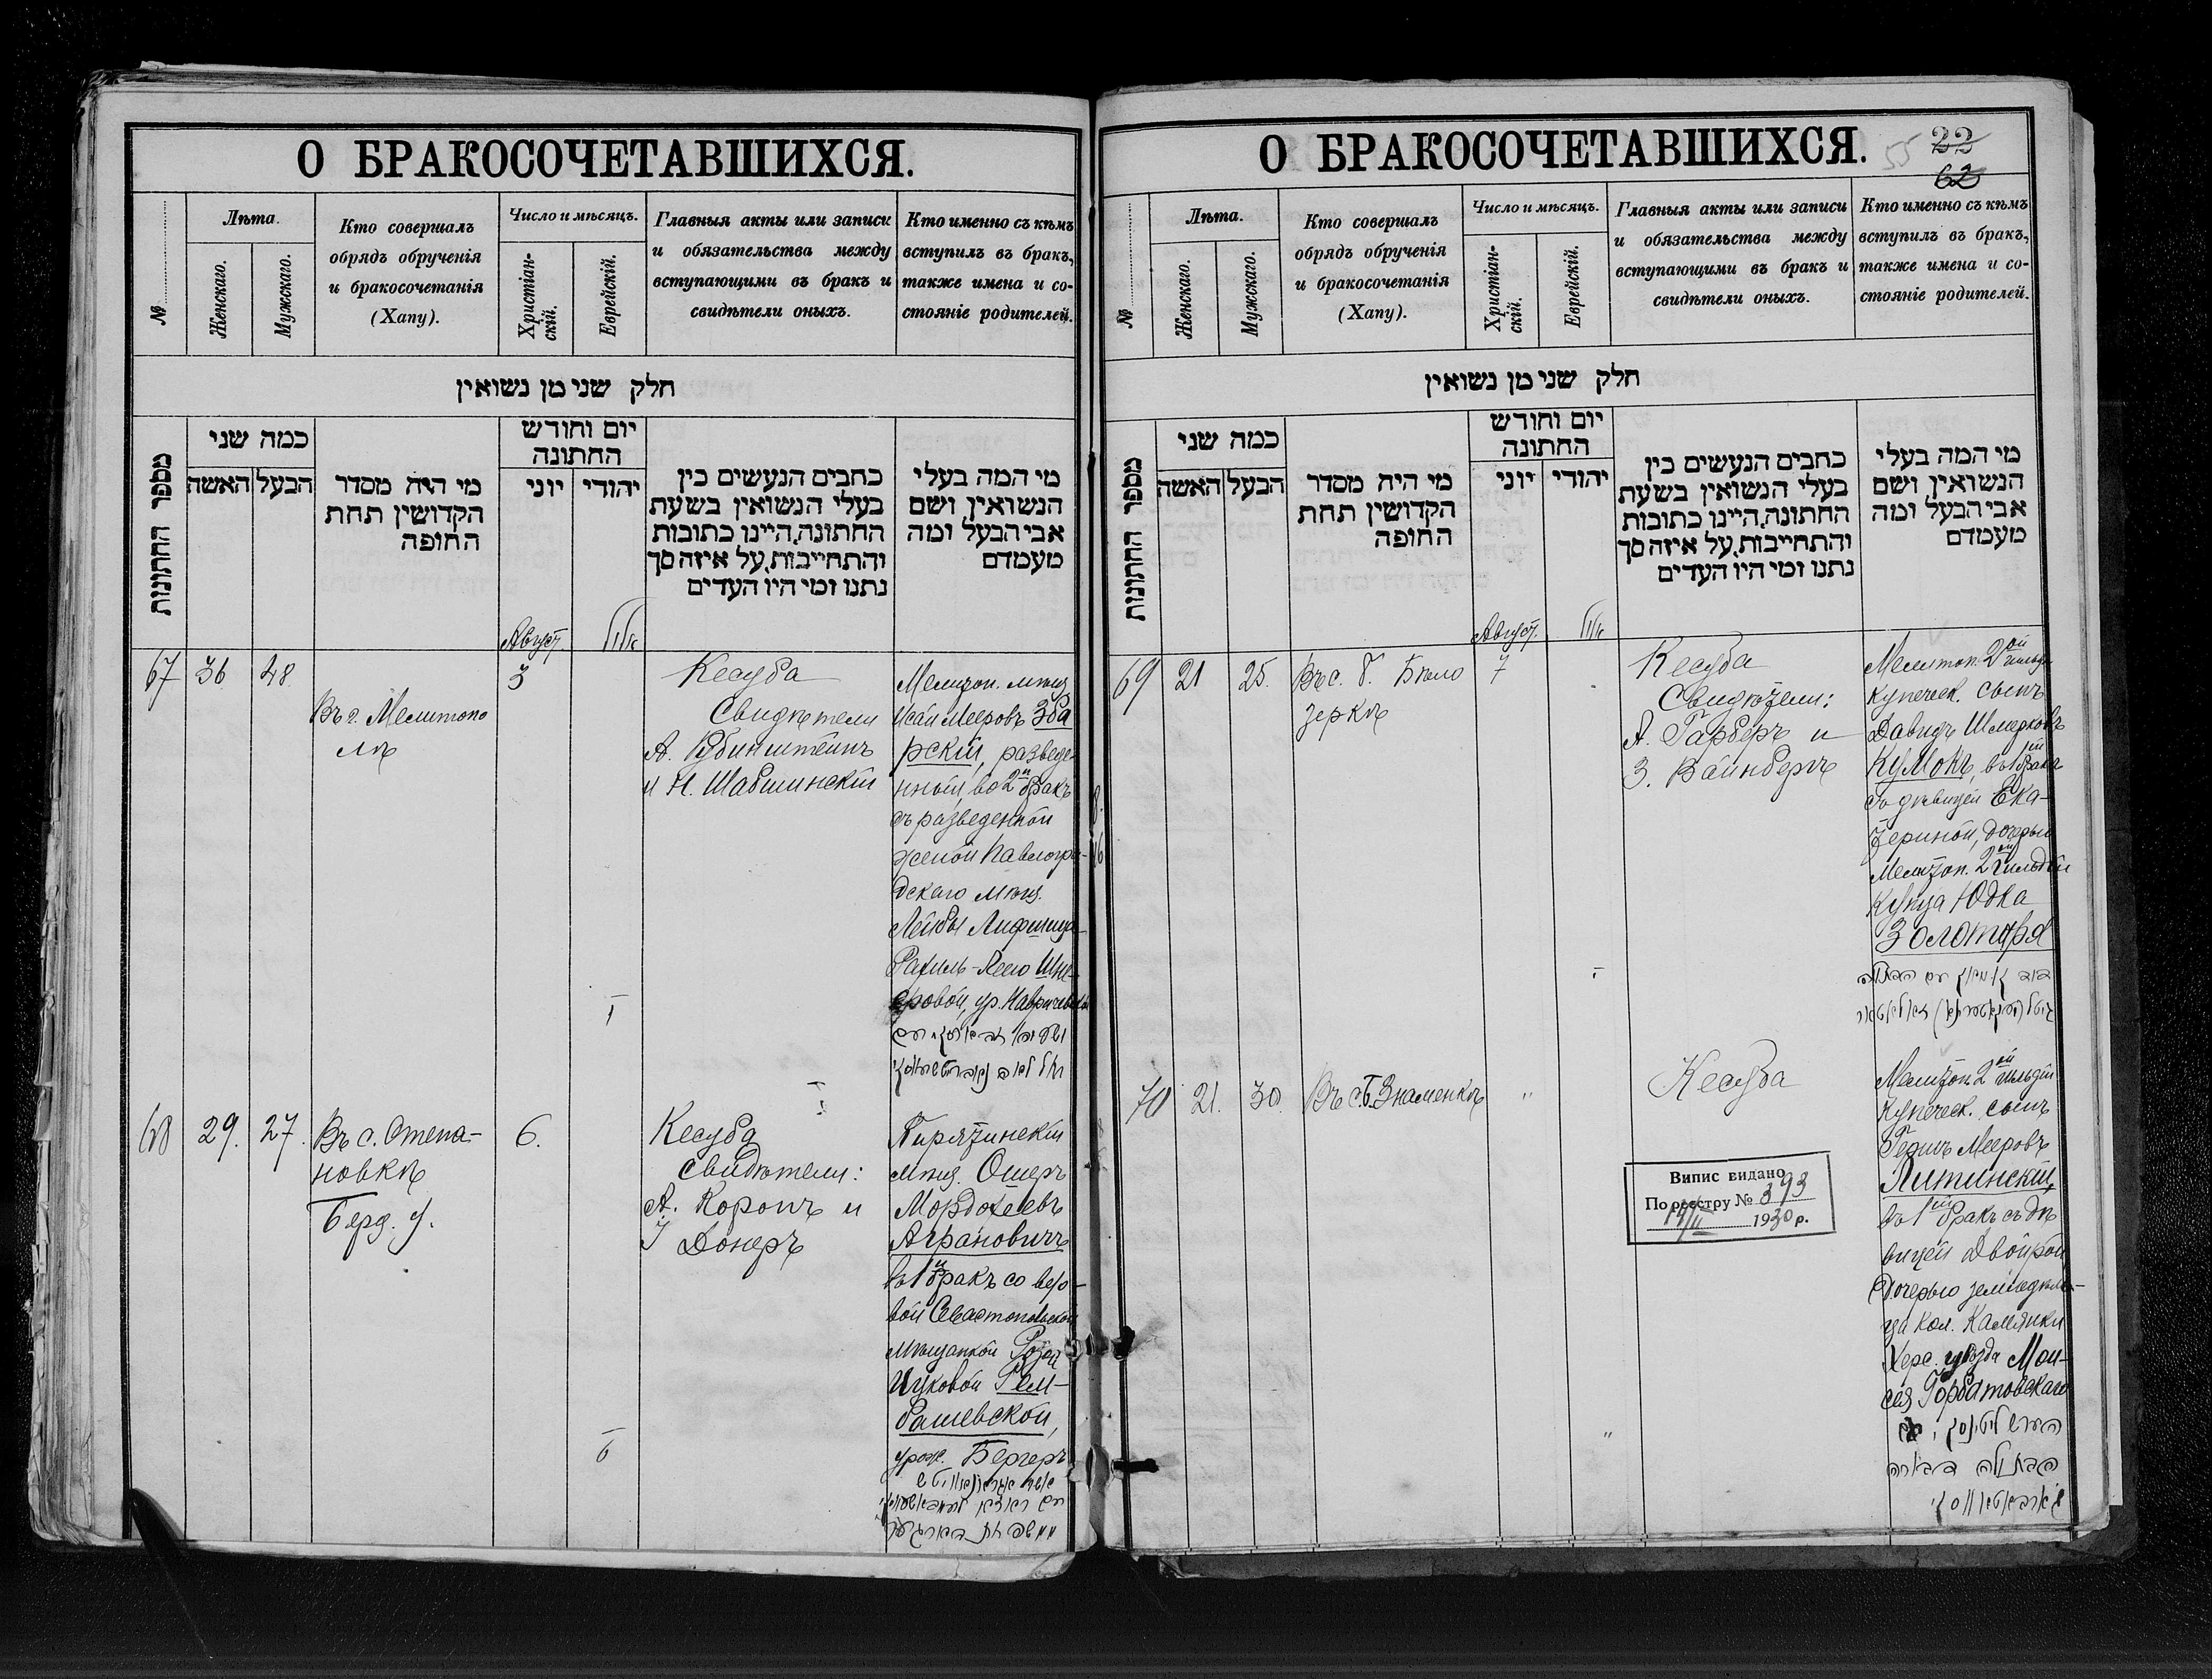 О БРАКОСОЧЕТАВШИХСЯ.
№
Лѣта.
Женскаго.
Мужскаго.
Кто совершалъ
обрядъ обрученія
и бракосочетанія
(Хапу).
Число и мѣсяцъ.
Христіан-
скій.
Еврейскій.
Главныя акты или записи
и обязательства между
вступающими въ бракъ и
свидѣтели оныхъ.
Кто именно съ кѣмъ
вступилъ въ бракъ,
также имена и со-
стояніе родителей.
חלק שני מן נשואין
מספר החתונות
כמה שני
הבעל האשה
מי היה מסדר
הקדושין תחת
החופה
יום וחודש
החתונה
יהודי יוני
כתבים הנעשים בין
בעלי הנשואין בשעת
החתונה, היינו כתובות
והתחייבות, על איזה סך
נתנו ומי היו העדים
מי המה בעלי
הנשואין ושם
אבי הבעל ומה
מעמדם
Август.
67 36 48.
Въ г. Мелитопо
лѣ
3
Кесуба
Свидѣтели
А. Рубинштейнъ
и Н. Шабшинскій
Мелитоп. мѣщ.
Исай Мееровъ Зба
рскій, разведе-
нный, во 2й бракъ
съ разведенной
женой Павлогра-
дскаго мѣщ.
Лейбы Лифшица
Рахиль-Леею
68 29. 27.
Въ с. Степа-
новкѣ
Берд. у.
6.
Кесуба
свидѣтели:
А. Коропъ и
Донеръ
6
Пирятинскій
мѣщ. Ошеръ
Мордохеевъ
Аграновичъ
въ 1й бракъ со вдо-
вой Севастопольской
мѣщанкой Розой
Ицковой Рем-
башевской,
урож. Бергеръ
О БРАКОСОЧЕТАВШИХСЯ.
55 22
62
№
Лѣта.
Женскаго.
Мужскаго.
Кто совершалъ
обрядъ обрученія
и бракосочетанія
(Хапу).
Число и мѣсяцъ.
Христіан-
скій.
Еврейскій.
Главныя акты или записи
и обязательства между
вступающими въ бракъ и
свидѣтели оныхъ.
Кто именно съ кѣмъ
вступилъ въ бракъ,
также имена и со-
стояніе родителей.
חלק שני מן נשואין
מספר החתונות
כמה שני
הבעל האשה
מי היה מסדר
הקדושין תחת
החופה
יום וחודש
החתונה
יהודי יוני
כתבים הנעשים בין
בעלי הנשואין בשעת
החתונה, היינו כתובות
והתחייבות, על איזה סך
נתנו ומי היו העדים
מי המה בעלי
הנשואין ושם
אבי הבעל ומה
מעמדם
Август.
69 21 25.
Въ с. Б. Бѣло
зеркѣ
7
Кесуба
Свидѣтели:
А. Гарберъ и
З. Вайнбергъ
Мелитоп. 2ой гильд.
купеческ. сынъ
Давидъ Шмерковъ
Кумокъ, въ 1й бракъ
съ дѣвицей Ека-
териной, дочерью
Мелитоп. 2ой гильдіи
купца Юдка
Золотаря
70 21. 30.
Въ с. Б. Знаменкѣ
"
Кесуба
Випис видано
По реєстру № 393
1930 р.
"
Мелитоп. 2ой гильдіи
купеческ. сынъ
Гершъ Мееровъ
Литинскій,
въ 1й бракъ съ дѣ
вицей Двойрой
дочерью земледѣль-
ца кол. Камянки
Херс. уѣзда Мои-
сея Горбатовскаго